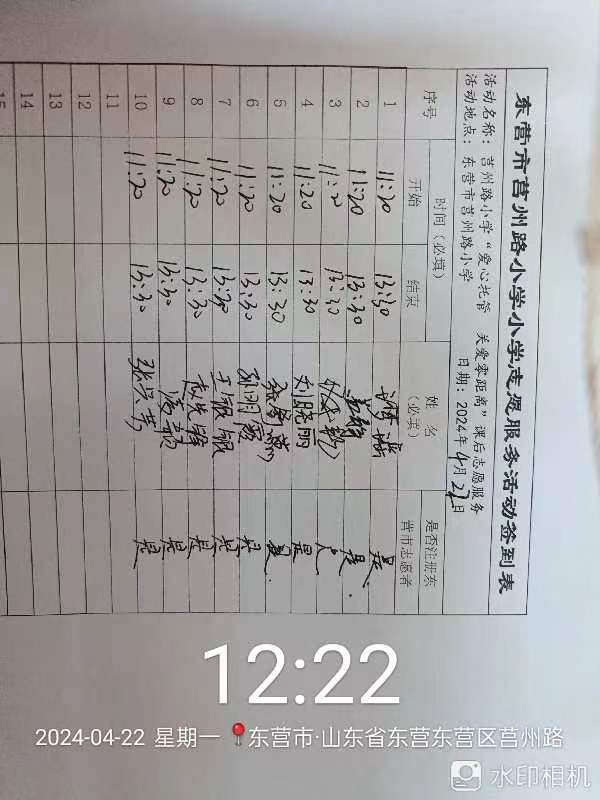 东营市莒州路小学小学志愿服务活动签到表
活动名称：莒州路小学“爱心托管 关爱零距离”课后志愿服务
活动地点：东营市莒州路小学 日期：2024年4月22日
序号 时间（必填） 姓名（必填） 是否注册东营市志愿者
开始 结束
1 11:20 13:30 是
2 11:20 13:30 是
3 11:20 13:30
4 11:20 13:30 刘晓丽 是
5 11:20 13:30 是
6 11:20 13:30 是
7 11:20 13:30 王银银 是
8 11:20 13:30 是
9 11:20 13:30 是
10 11:20 13:30 是
11
12
13
14
15
12:22
2024-04-22 星期一 东营市·山东省东营东营区莒州路
水印相机